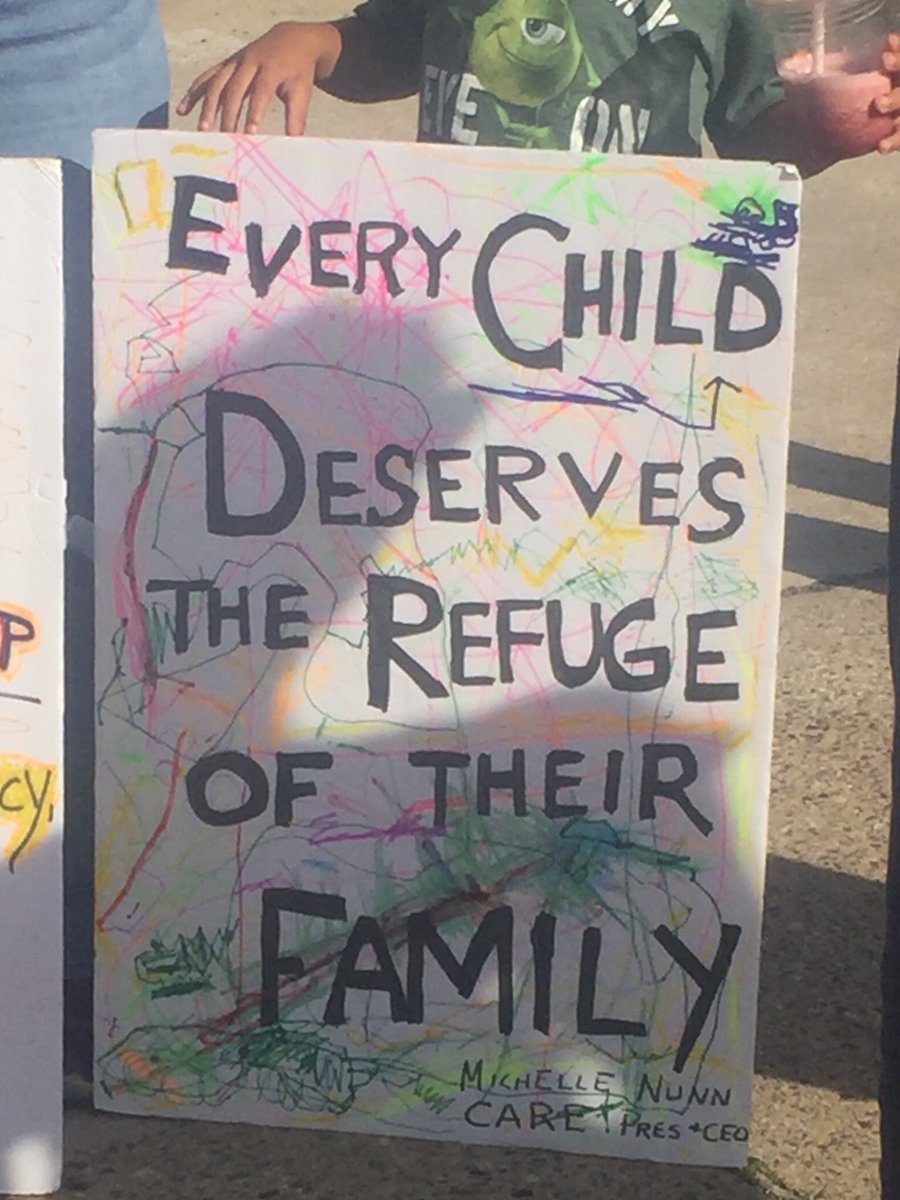 EYE ON
EVERY CHILD
DESERVES
THE REFUGE
OF THEIR
FAMILY
MICHELLE NUNN
CARE PRES + CEO
P
CY,